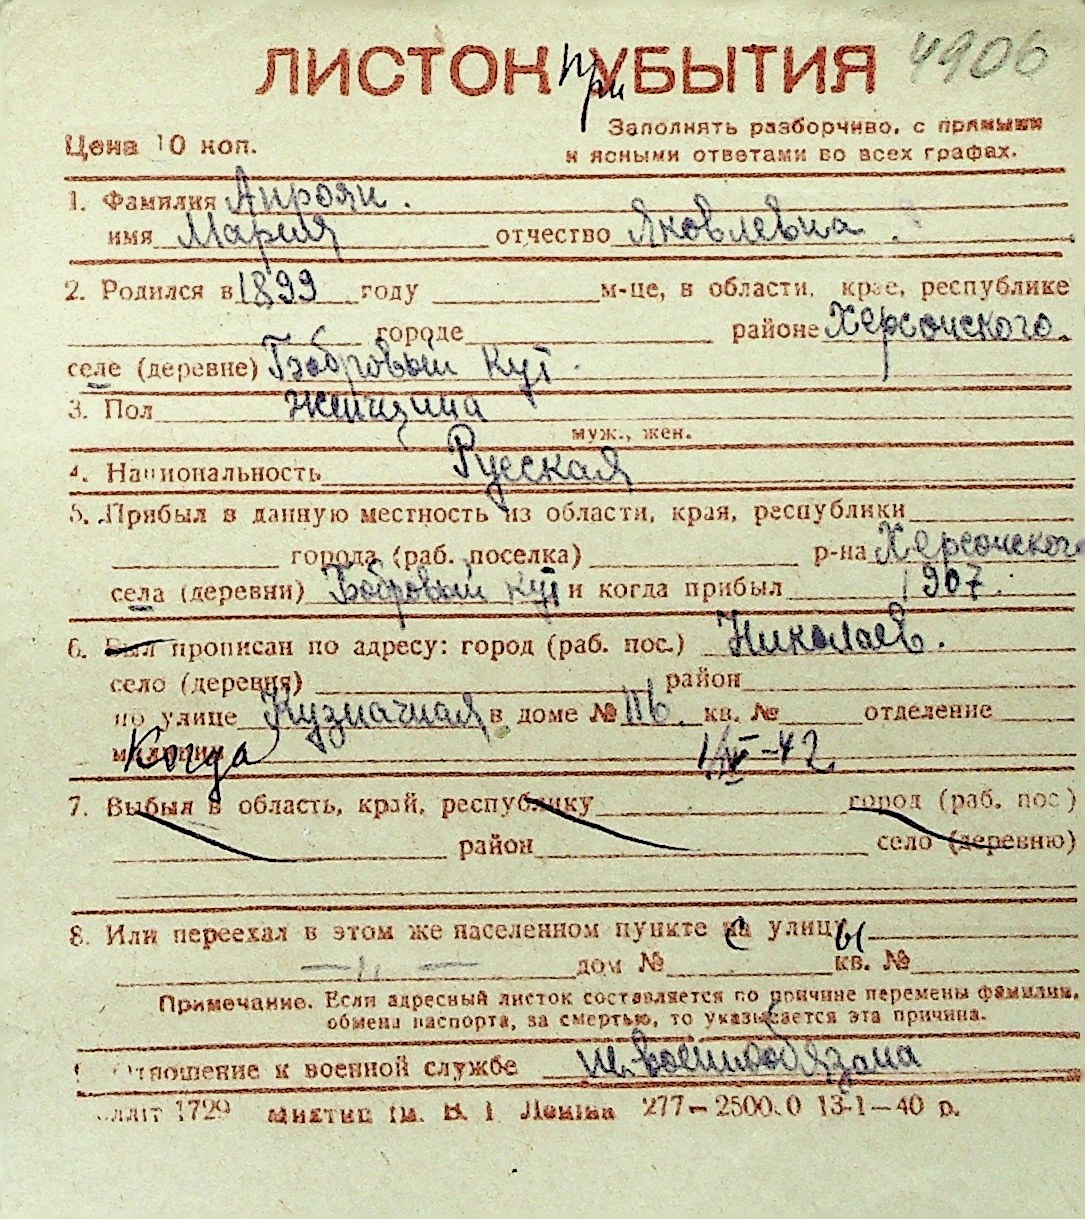 ЛИСТОК при УБЫТИЯ 4906
Цена 10 коп.
Заполнять разборчиво, с прямыми
и ясными ответами во всех графах.
1. Фамилия Апроян.
имя Мария отчество Яковлевна.
2. Родился в 1899 году м-це, в области, крае, республике
городе районе Херсонского.
селе (деревне) Бобровый Кут.
3. Пол женщина
муж., жен.
4. Национальность Русская
5. Прибыл в данную местность из области, края, республики
города (раб. поселка) р-на Херсонского
села (деревни) Бобровый Кут и когда прибыл 1907.
6. Был прописан по адресу: город (раб. пос.) Николаев.
село (деревня) район
по улице Кузначная в доме № кв. № отделение
милиции Когда 1/IV-42
7. Выбыл в область, край, республику город (раб. пос)
район село (деревню)
8. Или переехал в этом же населенном пункте с улицы
— „ — дом № кв. №
Примечание. Если адресный листок составляется по причине перемены фамилии,
обмена паспорта, за смертью, то указывается эта причина.
Отношение к военной службе военнообязана
1729 им. В. І. Леніна 277—2500.0 13-1—40 р.